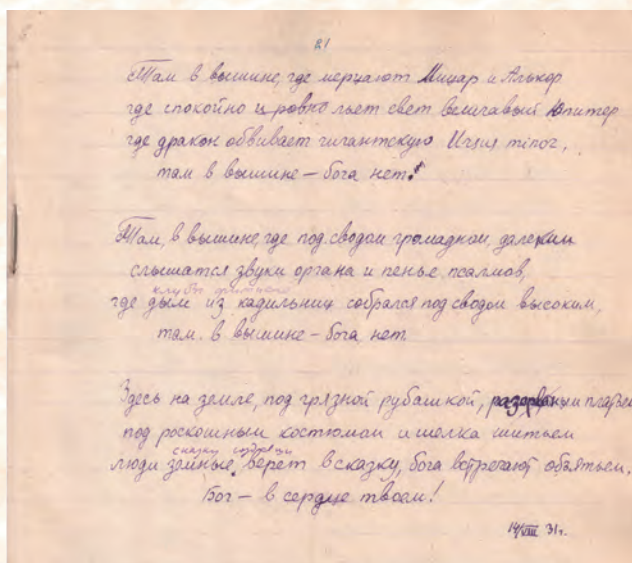 21
Там в вышине, где мерцают Мицар и Алькор
где спокойно и ровно льет свет величавый Юпитер
где дракон обвивает гигантскую Ursus minor,
там в вышине – бога нет!
Там, в вышине, где под сводом громадном, далеким
слышатся звуки органа и пенье псалмов,
клубы
где дым из кадильниц собрался под сводом высоким,
там. в вышине – бога нет
Здесь на земле, под грязной рубашкой, платьем
под роскошным костюмом и шелка шитьем
сказку
люди земные верят в сказку, бога встречают объятьем,
Бог – в сердце твоем!
14/VIII 31г.